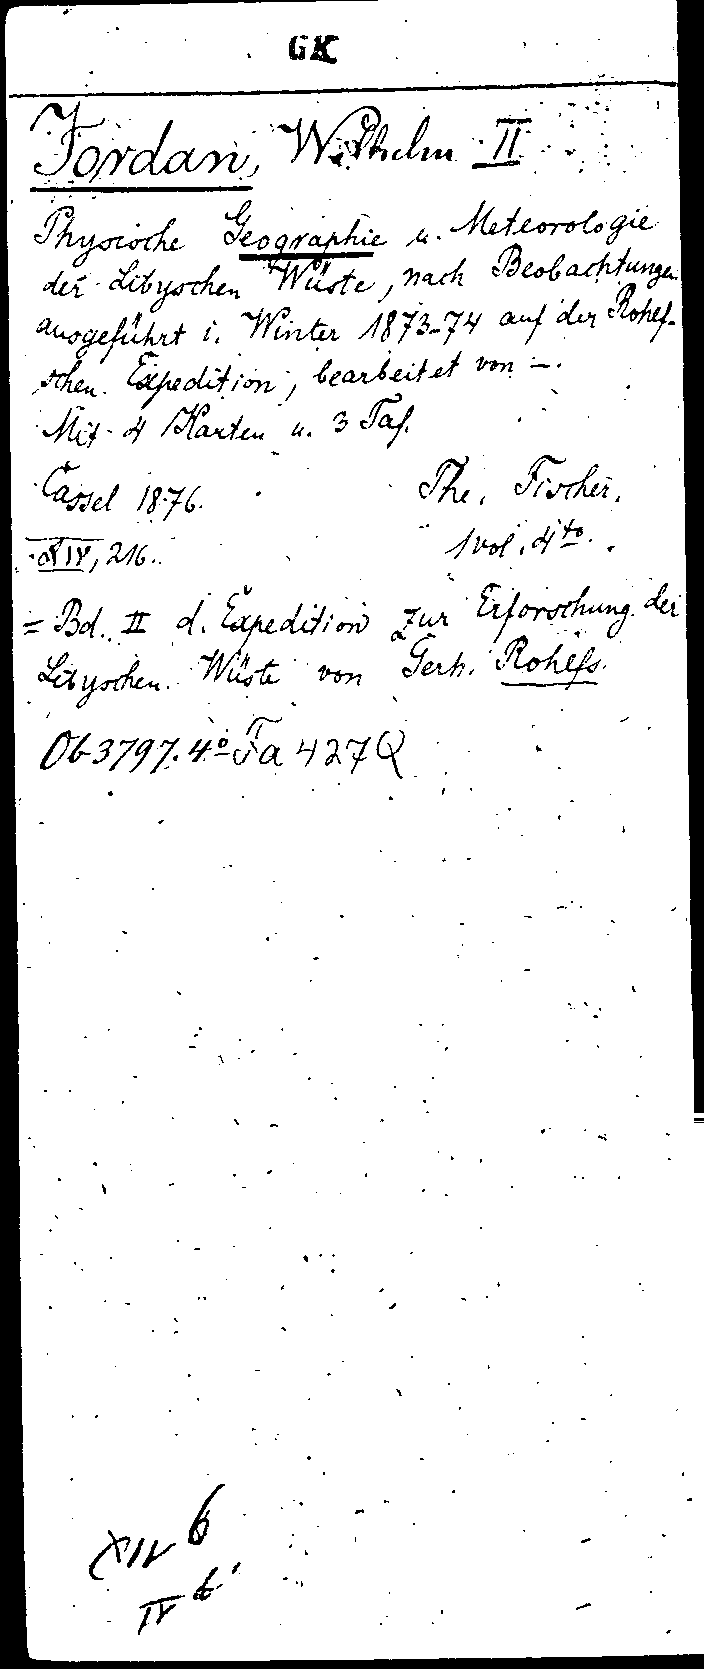 GK
Jordan, Wilhelm II
Physische Geographie u. Meteorologie
der Libyschen Wüste, nach Beobachtungen
ausgeführt i. Winter 1873-74 auf der Rohlf-
schen Expedition, bearbeitet von –.
Mit 4 Karten u. 3 Taf.
Cassel 1876. The. Fischer.
216. 1 vol. 4to.
= Bd. II d. Expedition zur Erforschung der
Libyschen Wüste von Gerh. Rohlfs.
Ob 3797.4o Fa 427Q
6
IV 6